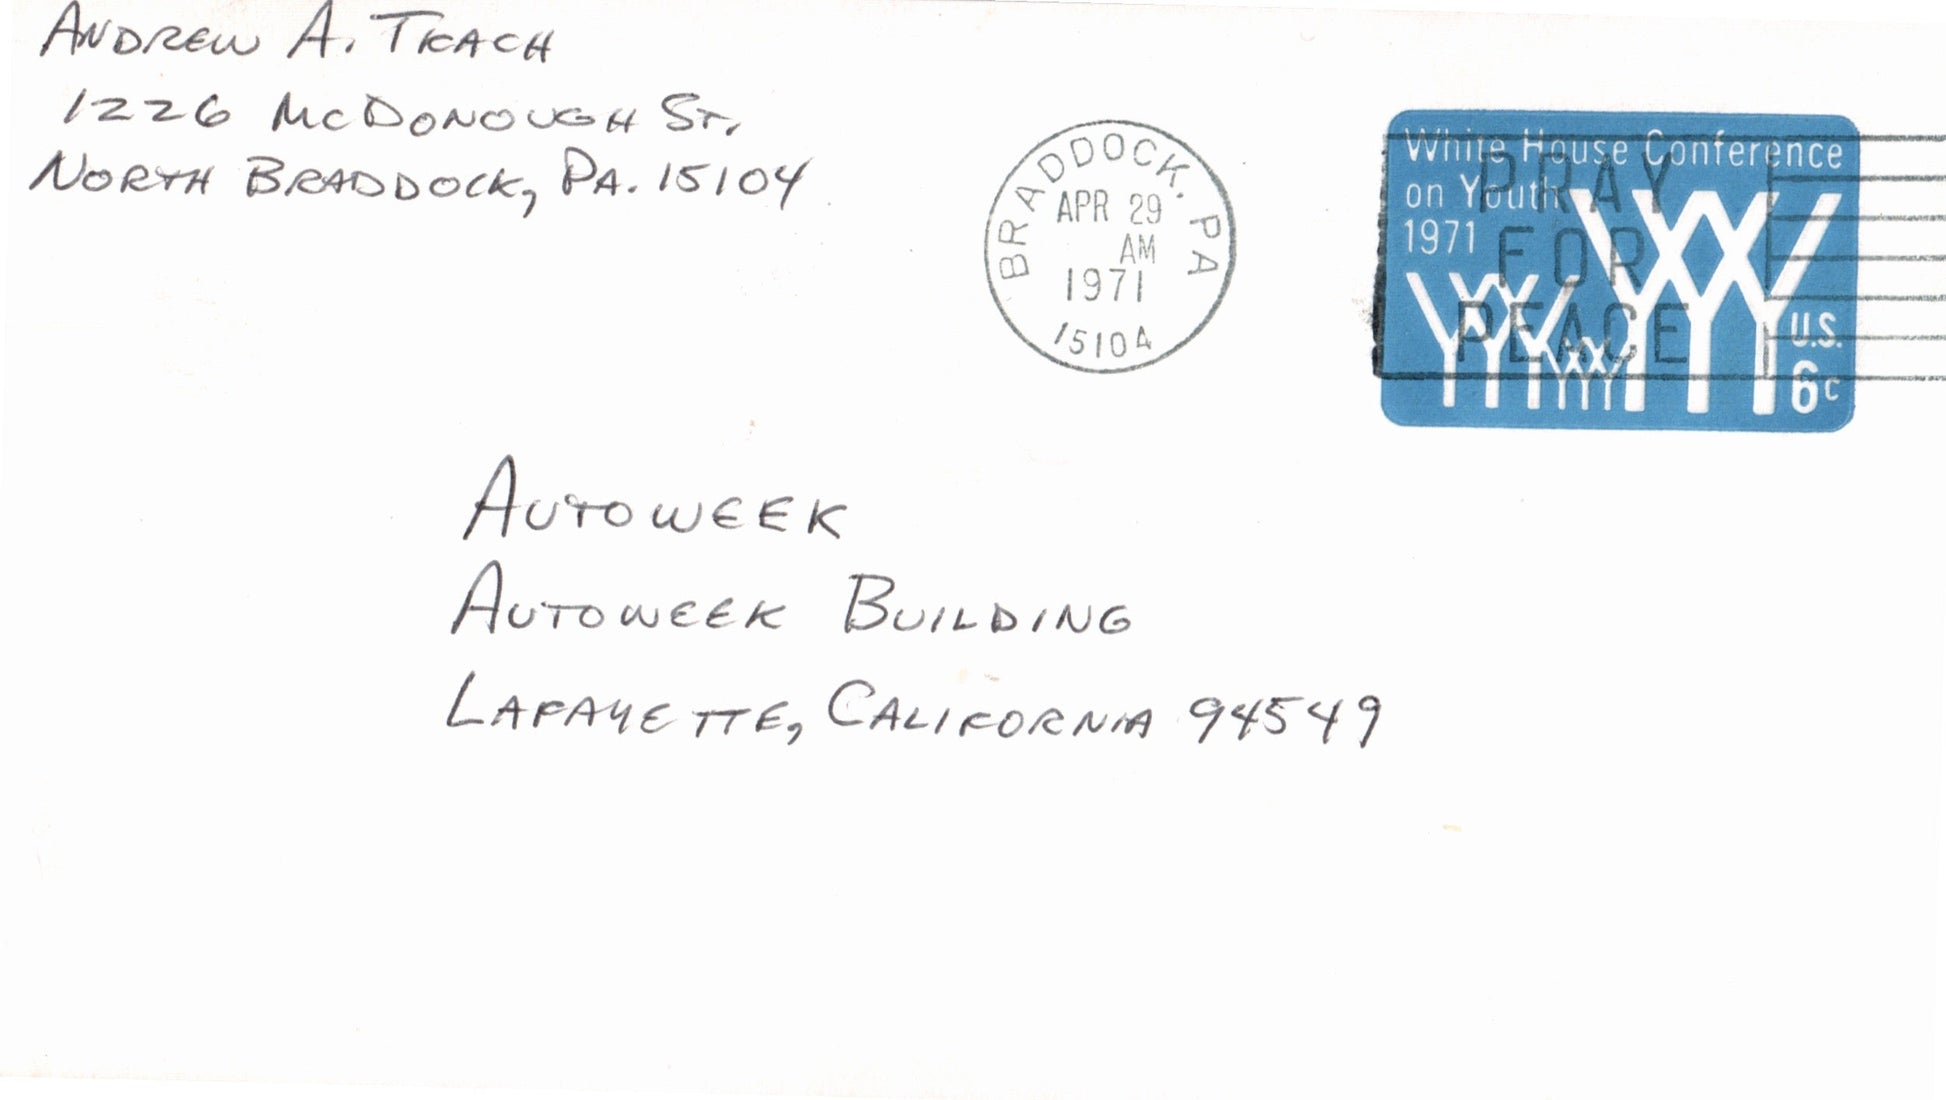 ANDREW A. TRACH
1226 McDONOUGH ST.
NORTH BRADDOCK, PA. 15104
BRADDOCK, PA
APR 29
AM
1971
15104
White House Conference
on Youth
1971
U.S.
6c
PRAY
FOR
PEACE
AUTOWEEK
AUTOWEEK BUILDING
LAFAYETTE, CALIFORNIA 94549